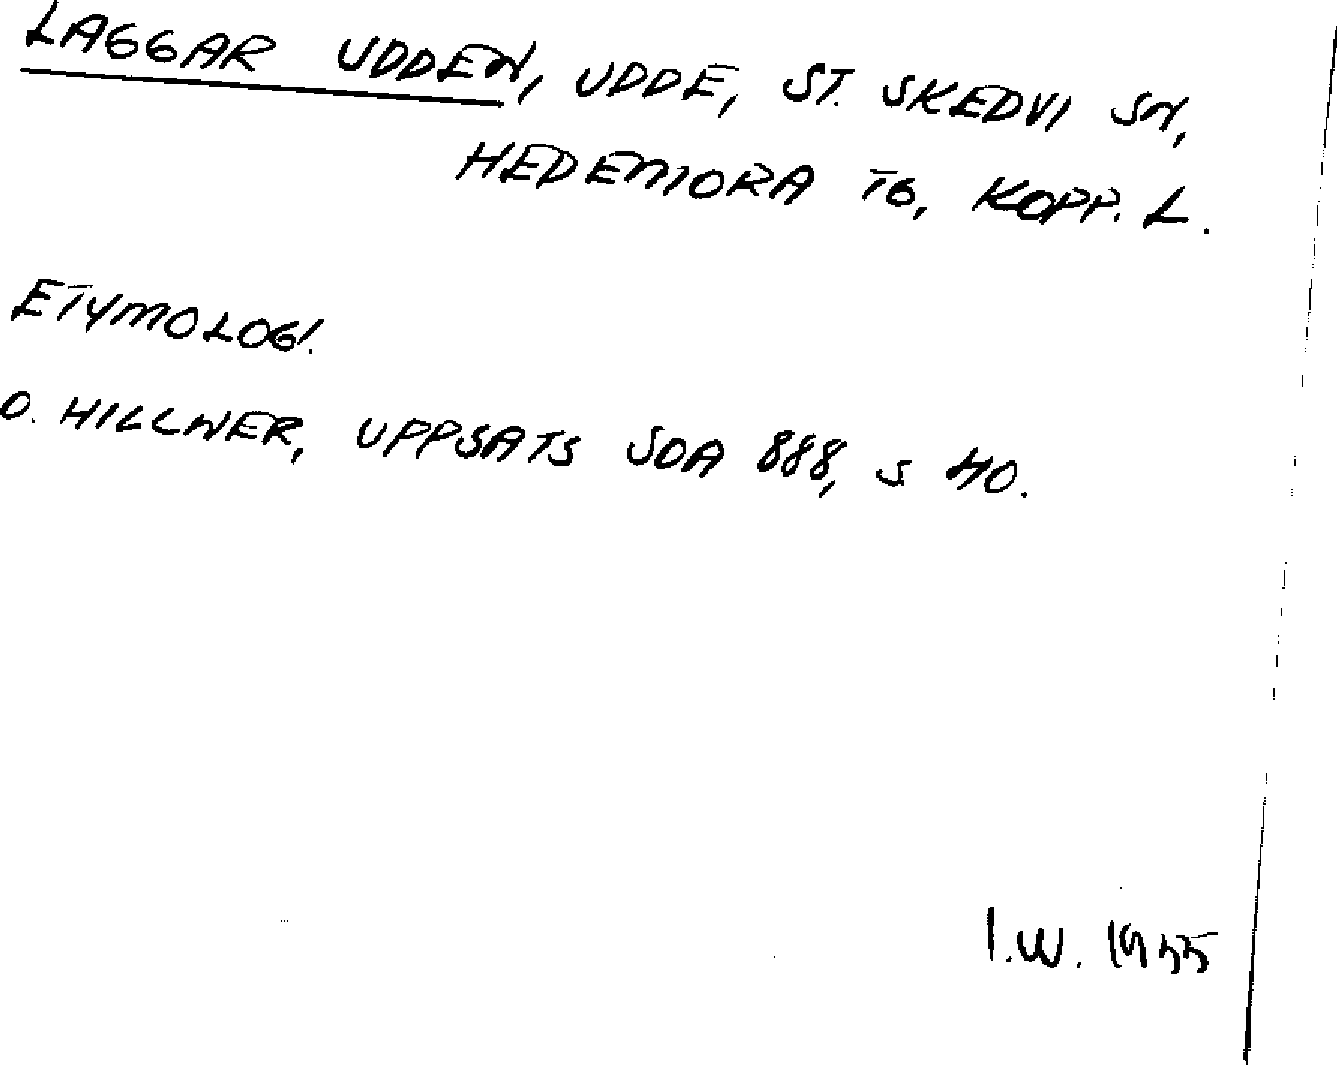 LAGGAR UDDEN, UDDE, ST. SKEDVI SN,
HEDEMORA TG, KOPP. L.
ETYMOLOGI.
O. HILLNER, UPPSATS SOA 888, S 40.
I.W. 1955